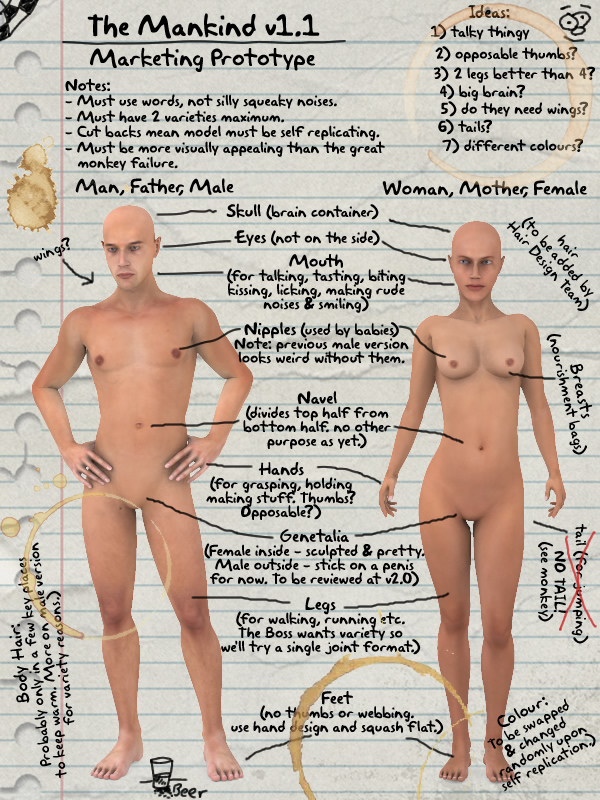 The Mankind v1.1
Marketing Prototype
Ideas:
1) talky thingy
2) opposable thumbs?
3) 2 legs better than 4?
4) big brain?
5) do they need wings?
6) tails?
7) different colours?
Notes:
- Must use words, not silly squeaky noises.
- Must have 2 varieties maximum.
- Cut backs mean model must be self replicating.
- Must be more visually appealing than the great
monkey failure.
Man, Father, Male
Woman, Mother, Female
wings?
Skull (brain container)
Eyes (not on the side)
Mouth
(for talking, tasting, biting
kissing, licking, making rude
noises & smiling)
hair
(to be added by
Hair Design Team)
Nipples (used by babies)
Note: previous male version
looks weird without them.
Breasts
(nourishment bags)
Navel
(divides top half from
bottom half. no other
purpose as yet.)
Hands
(for grasping, holding
making stuff. Thumbs?
Opposable?)
Genetalia
(Female inside - sculpted & pretty.
Male outside - stick on a penis
for now. To be reviewed at v2.0)
tail (for jumping)
NO TAIL!
(see monkey)
Legs
(for walking, running etc.
The Boss wants variety so
we'll try a single joint format.)
Body Hair:
Probably only in a few key places
to keep warm. More on male version
for variety reasons.)
Feet
(no thumbs or webbing.
use hand design and squash flat.)
Colour:
To be swapped
& changed
randomly upon
self replication.)
Beer